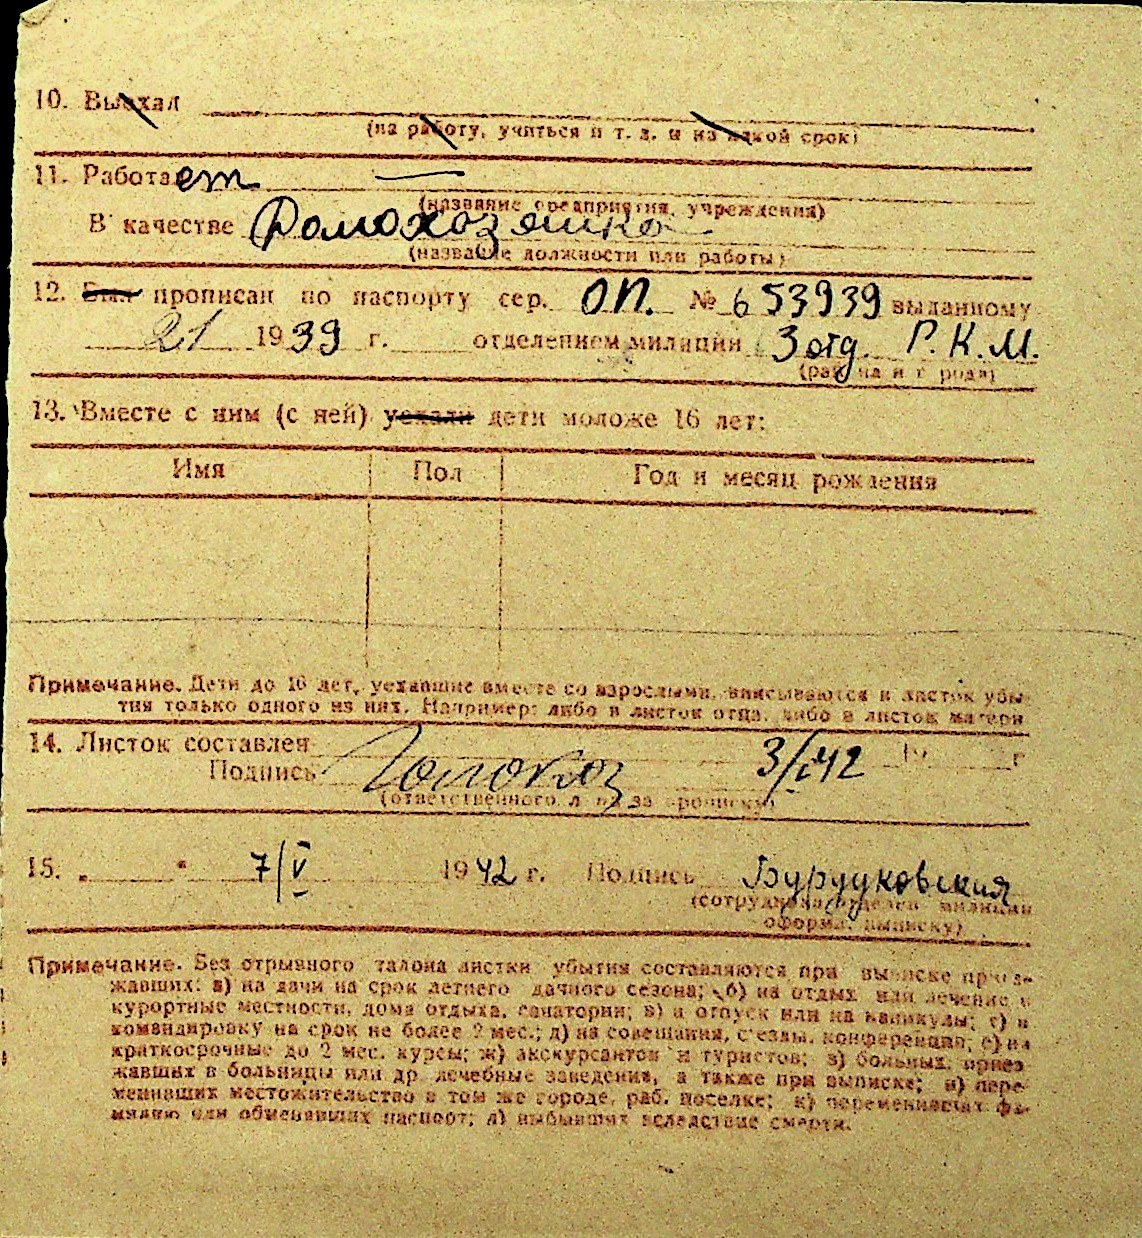 10. Выехал
(на работу, учиться и т. д. и на какой срок)
11. Работает —
(название предприятия, учреждения)
В качестве Домохозяйка
(название должности или работы)
12. Был прописан по паспорту сер. ОП. № 653939 выданному
21 1939 г. отделением милиции 3 отд. Р.К.М.
(района и города)
13. Вместе с ним (с ней) уехали дети моложе 16 лет:
Имя Пол Год и месяц рождения
Примечание. Дети до 16 лет, уехавшие вместе со взрослыми, вписываются в листок убы-
тия только одного из них. Например: либо в листок отца, либо в листок матери
14. Листок составлен 3/V 42 19 г
Подпись
(ответственного лица за прописку)
15. „ “ 7/V 1942 г. Подпись
(сотрудника отделен. милиции
оформ. выписку)
Примечание. Без отрывного талона листки убытия составляются при выписке приез-
жавших: а) на дачи на срок летнего дачного сезона; б) на отдых или лечение в
курортные местности, дома отдыха, санатории; в) в отпуск или на каникулы; г) в
командировку на срок не более 2 мес.; д) на совещания, съезды, конференции; е) на
краткосрочные до 2 мес. курсы; ж) экскурсантов и туристов; з) больных, приез
жавших в больницы или др. лечебные заведения, а также при выписке; и) пере-
менивших местожительство в том же городе, раб. поселке; к) переменивших фа-
милию или обменявших паспорт; л) выбывших вследствие смерти.